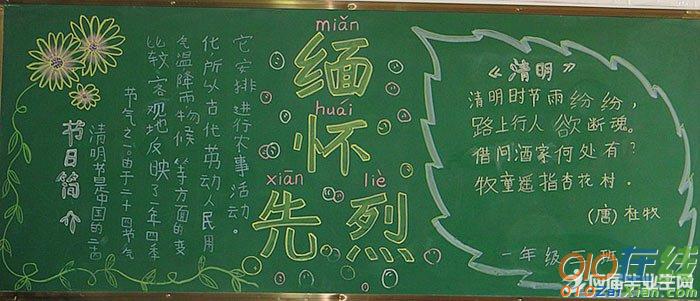 节日简介
清明节是中国的二十四
节气之一。由于二十四节气
比较客观地反映了一年四季
气温降雨物候等方面的变
化所以古代劳动人民用
它安排进行农事活动。
miǎn
缅
huái
怀
xiān liè
先烈
《清明》
清明时节雨纷纷，
路上行人欲断魂。
借问酒家何处有？
牧童遥指杏花村．
(唐)杜牧
一年级
910在线
应届毕业生网